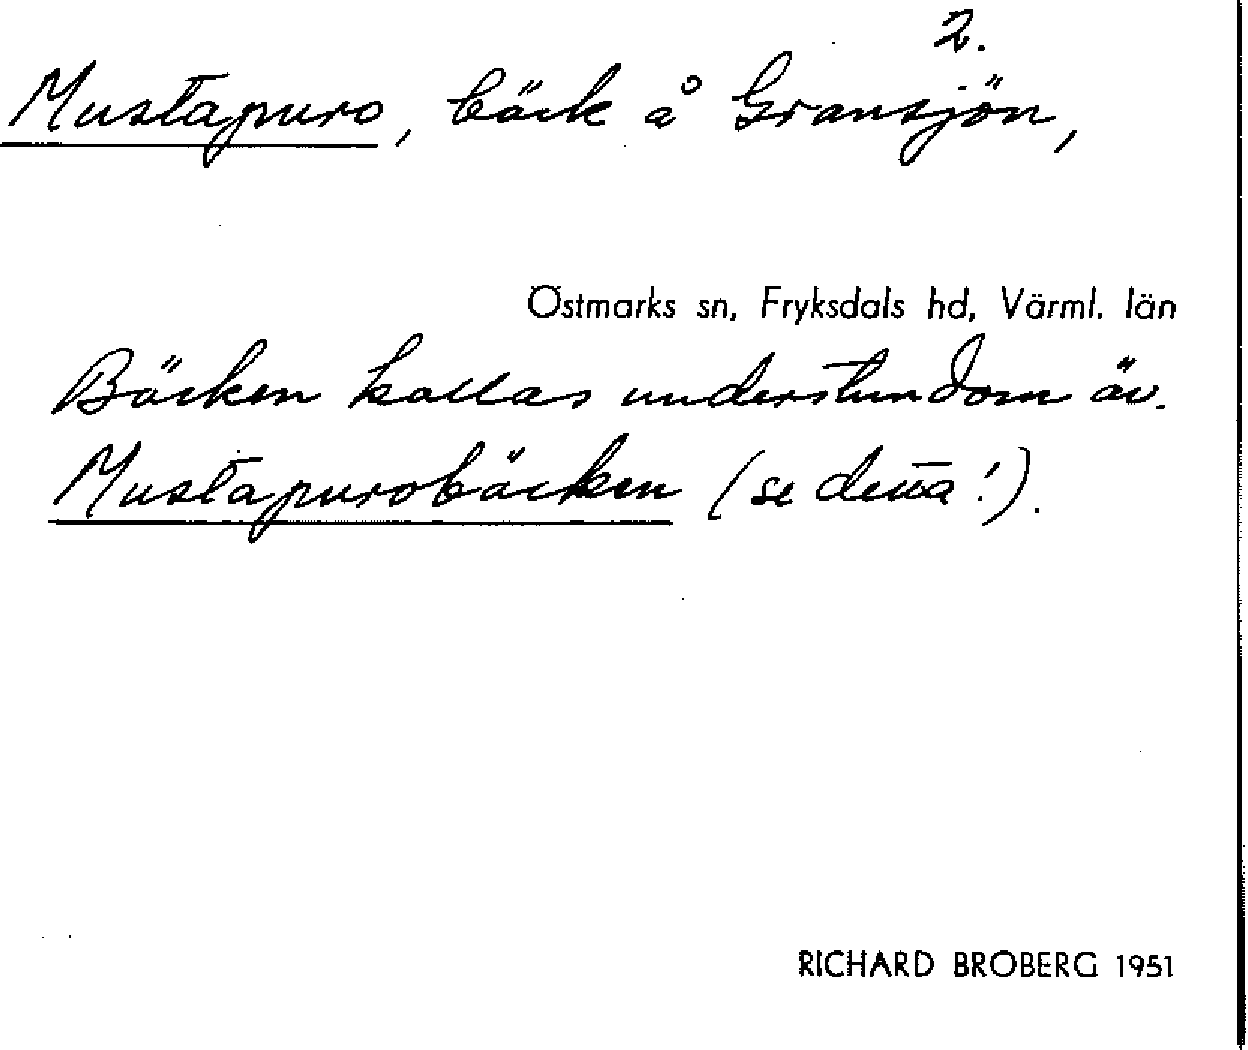 2.
Mustapuro, bäck å Gransjön,
Östmarks sn, Fryksdals hd, Värml. län
Bäcken kallas understundom äv.
Mustapurobäcken (se detta!).
RICHARD BROBERG 1951